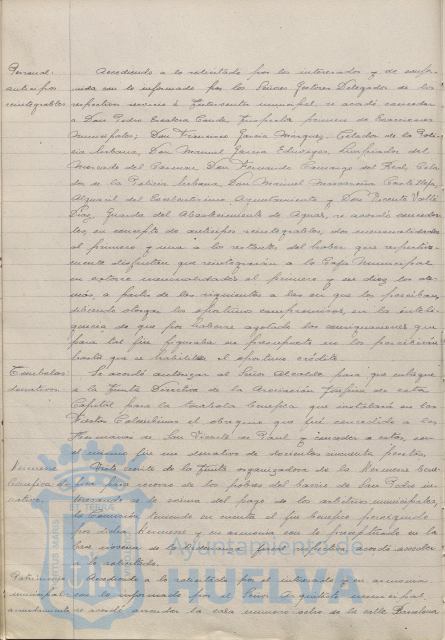 Personal: Accediendo a lo solicitado por los interesados y de confor-
anticipos midad con lo informado por los Señores Gestores Delegados de los
reintegrables respectivos servicios e Interventor municipal se acordó conceder
a Don Pedro primero de
Municipales; Don Francisco García Márquez, Celador de la Poli-
cía Urbana, Don Manuel García limpiador del
Mercado del Carmen, Don Fernando Camargo del Real, Cela-
dor de la Policía Urbana, Don Manuel
Alguacil del Excelentísimo Ayuntamiento y Don Vicente Valle
Díaz, Guarda del Abastecimiento de Aguas, se acordó conceder-
les, en concepto de anticipos reintegrables, dos mensualidades
al primero y una a los restantes, del haber que respectiva-
mente disfrutan que reintegrarán a la Caja Municipal
en catorce mensualidades el primero y en diez los de-
más, a partir de las siguientes a las en que los perciban,
debiendo otorgar los oportunos compromisos, en la inteli-
gencia de que por haberse agotado las consignaciones que
para tal fin figuraban en presupuesto no los percibirán
hasta que se habilite el oportuno crédito.
Tómbolas: Se acordó autorizar al Señor Alcalde para que entregue
donativos a la Junta Directiva de la Asociación Josefina de esta
Capital para la Tómbola benéfica que instalará en las
Fiestas Colombinas el obsequio que fué concedido a las
Hermanas de San Vicente de Paul y conceder a estas, con
el mismo fin un donativo de doscientas cincuenta pesetas.
Verbena Visto escrito de la Junta organizadora de la Verbena bené-
benéfica fica para socorro de los pobres del barrio de San Pedro in-
teresando se le exima del pago de los arbitrios municipales,
la Comisión teniendo en cuenta el fin benéfico perseguido
por dicha Verbena y en armonía con lo preceptuado en la
base novena de la Ordenanza fiscal respectiva, acordó acceder
a lo solicitado.
Patrimonio Accediendo a lo solicitado por el interesado y en armonía
municipal: con lo informado por el Señor Arquitecto municipal
arrendamiento se acordó arrendar la casa número ocho de la calle Barcelona
Ayuntamiento de
HUELVA